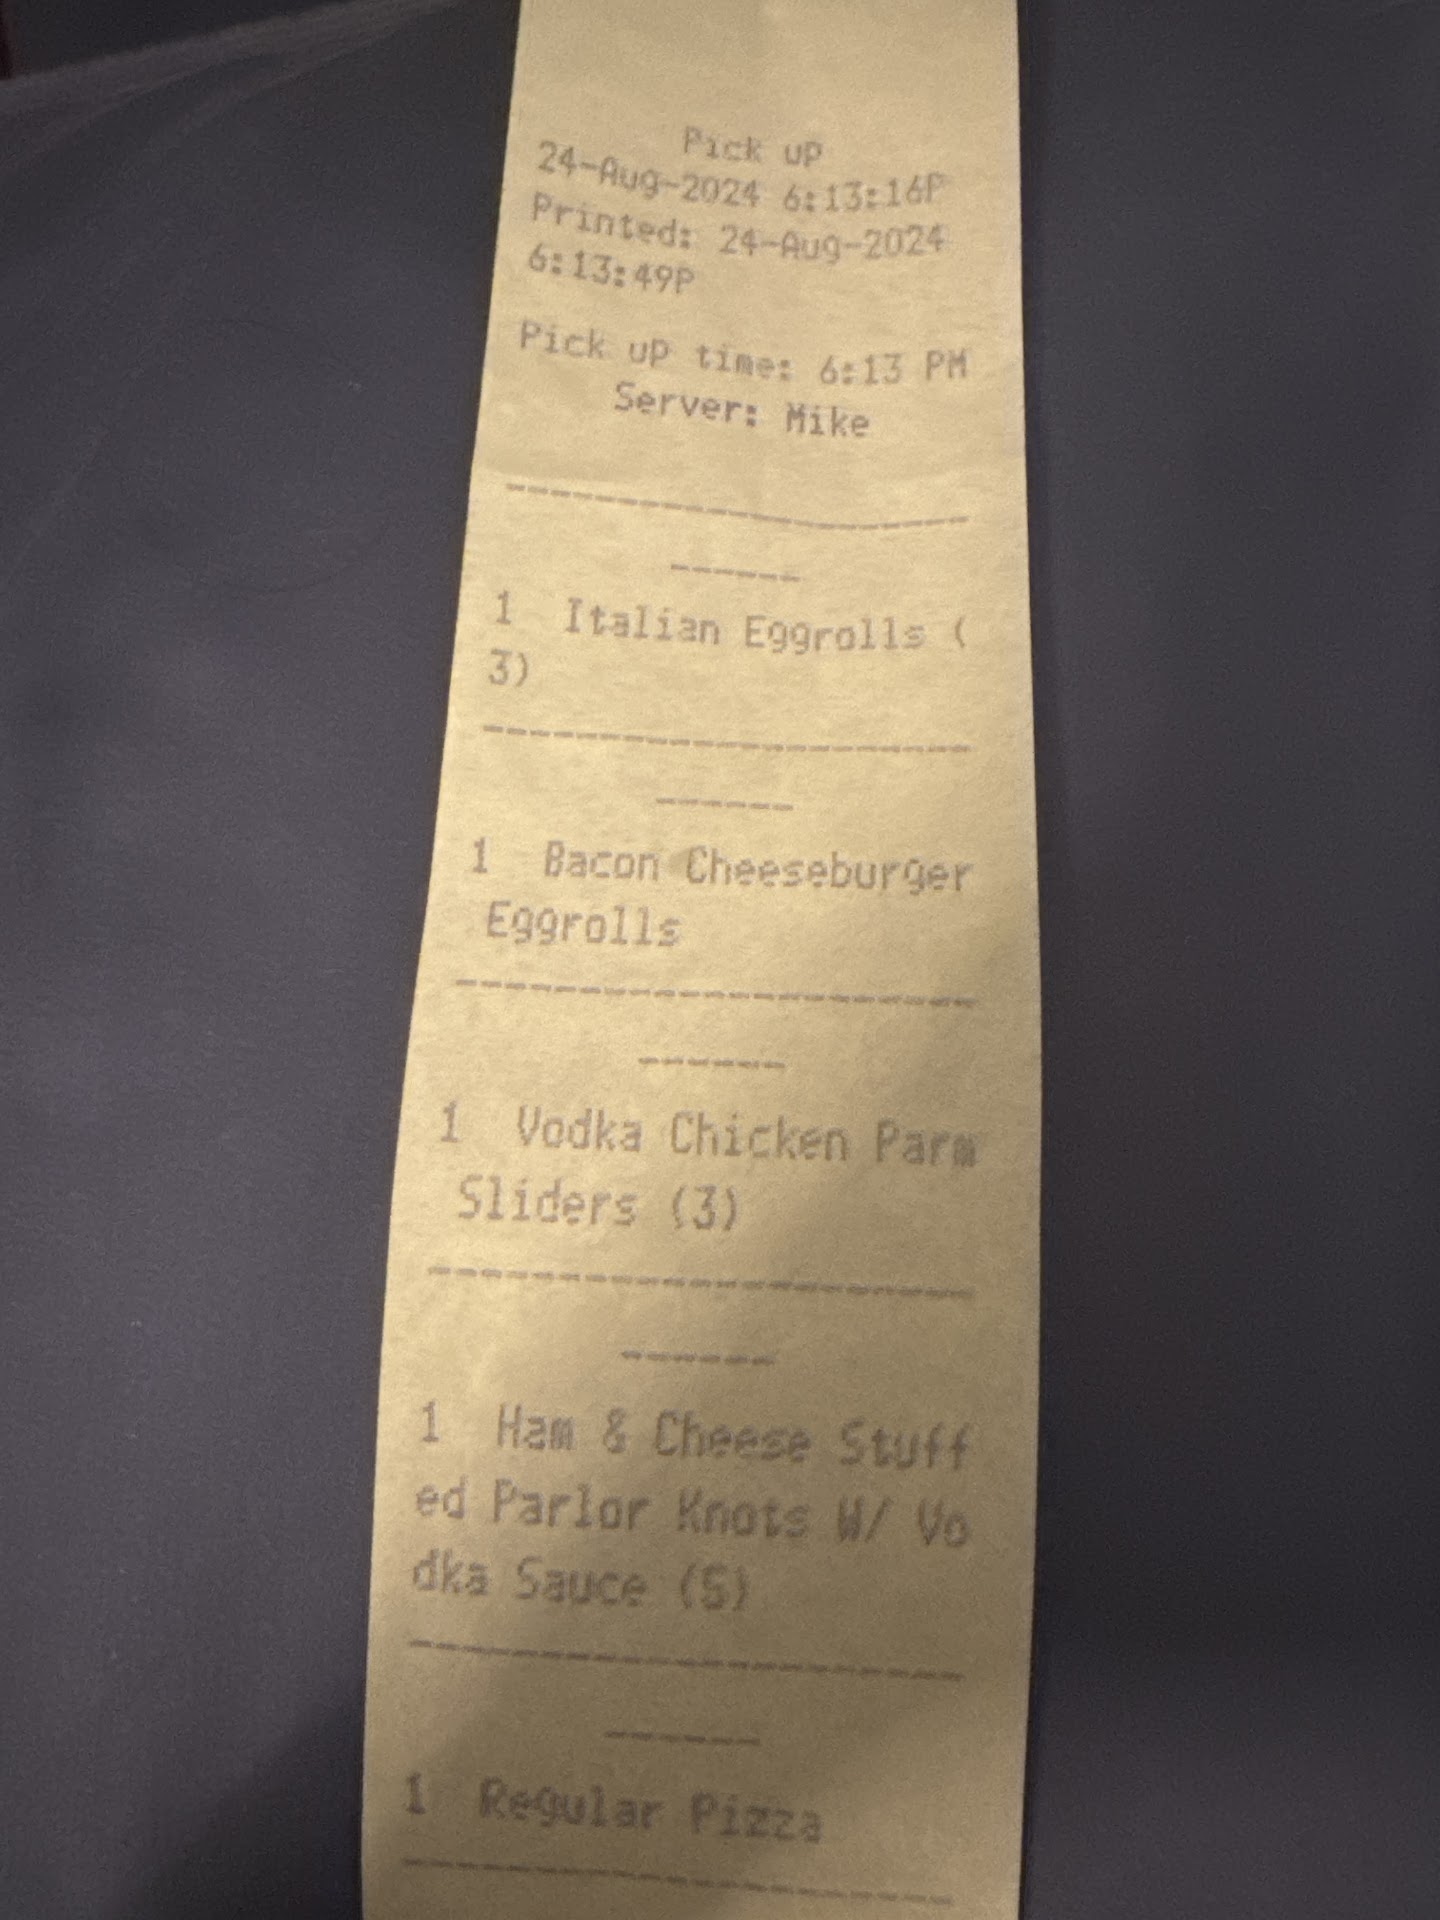 Pick up
24-Aug-2024 6:13:16P
Printed: 24-Aug-2024
6:13:49P
Pick up time: 6:13 PM
Server: Mike
--------------------
------
1 Italian Eggrolls (
3)
--------------------
------
1 Bacon Cheeseburger
Eggrolls
--------------------
------
1 Vodka Chicken Parm
Sliders (3)
--------------------
------
1 Ham & Cheese Stuff
ed Parlor Knots W/ Vo
dka Sauce (5)
--------------------
------
1 Regular Pizza
--------------------